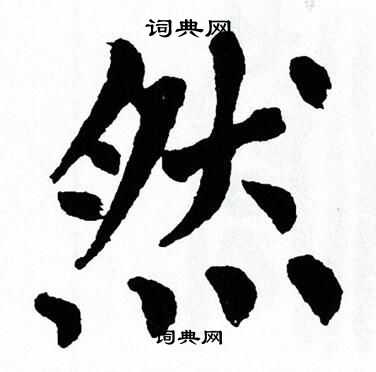 词典网
然
词典网